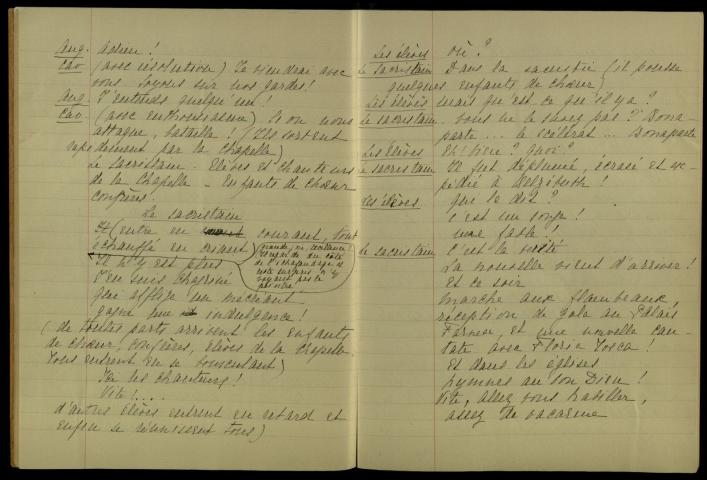 Ang. Adieu !
Cav (avec résolution) Je viendrai avec
vous. Soyons sur nos gardes !
Ang. J'entends quelqu'un !
Cav. (avec enthousiasme) Si on nous
attaque, bataille ! (Ils sortent
rapidement par la chapelle)
Le sacristain - Elèves et chanteurs
de la Chapelle - Enfants de chœur
confrères.
Le sacristain
(entre en courant, tout
échauffé en criant)
(Grande joie, excellence !
regarde du côté
de l'échafaudage et
reste surpris n'y
voyant pas le
peintre.
Il n'y est plus
J'en suis chagriné
qui afflige un mécréant
gagne une indulgence !
(de toutes parts arrivent les enfants
de chœur, confrères, élèves de la Chapelle.
Tous entrent en se bousculant)
Ici les chanteurs !
Vite !....
d'autres élèves entrent en retard et
enfin se réunissent tous)
Les élèves Où ?
Le sacristain Dans la sacristie (il pousse
quelques enfants de chœur)
Les élèves Mais qu'est ce qu'il y a ?
Le sacristain Vous ne le savez pas ? Bona-
parte ... le scélérat ... Bonaparte
Les élèves Eh ! bien ? quoi ?
Le sacristain Il fut déplumé, écrasé et ex-
pédié à Belzébuth !
Les élèves Qui le dit ?
C'est un songe !
Une fable !
Le sacristain C'est la vérité
La nouvelle vient d'arriver !
Et ce soir
Marche aux flambeaux,
réception de gala au Palais
Farnese, et une nouvelle can-
tate avec Floria Tosca !
Et dans les églises
Hymnes au bon Dieu !
Vite, allez vous habiller,
assez de vacarme